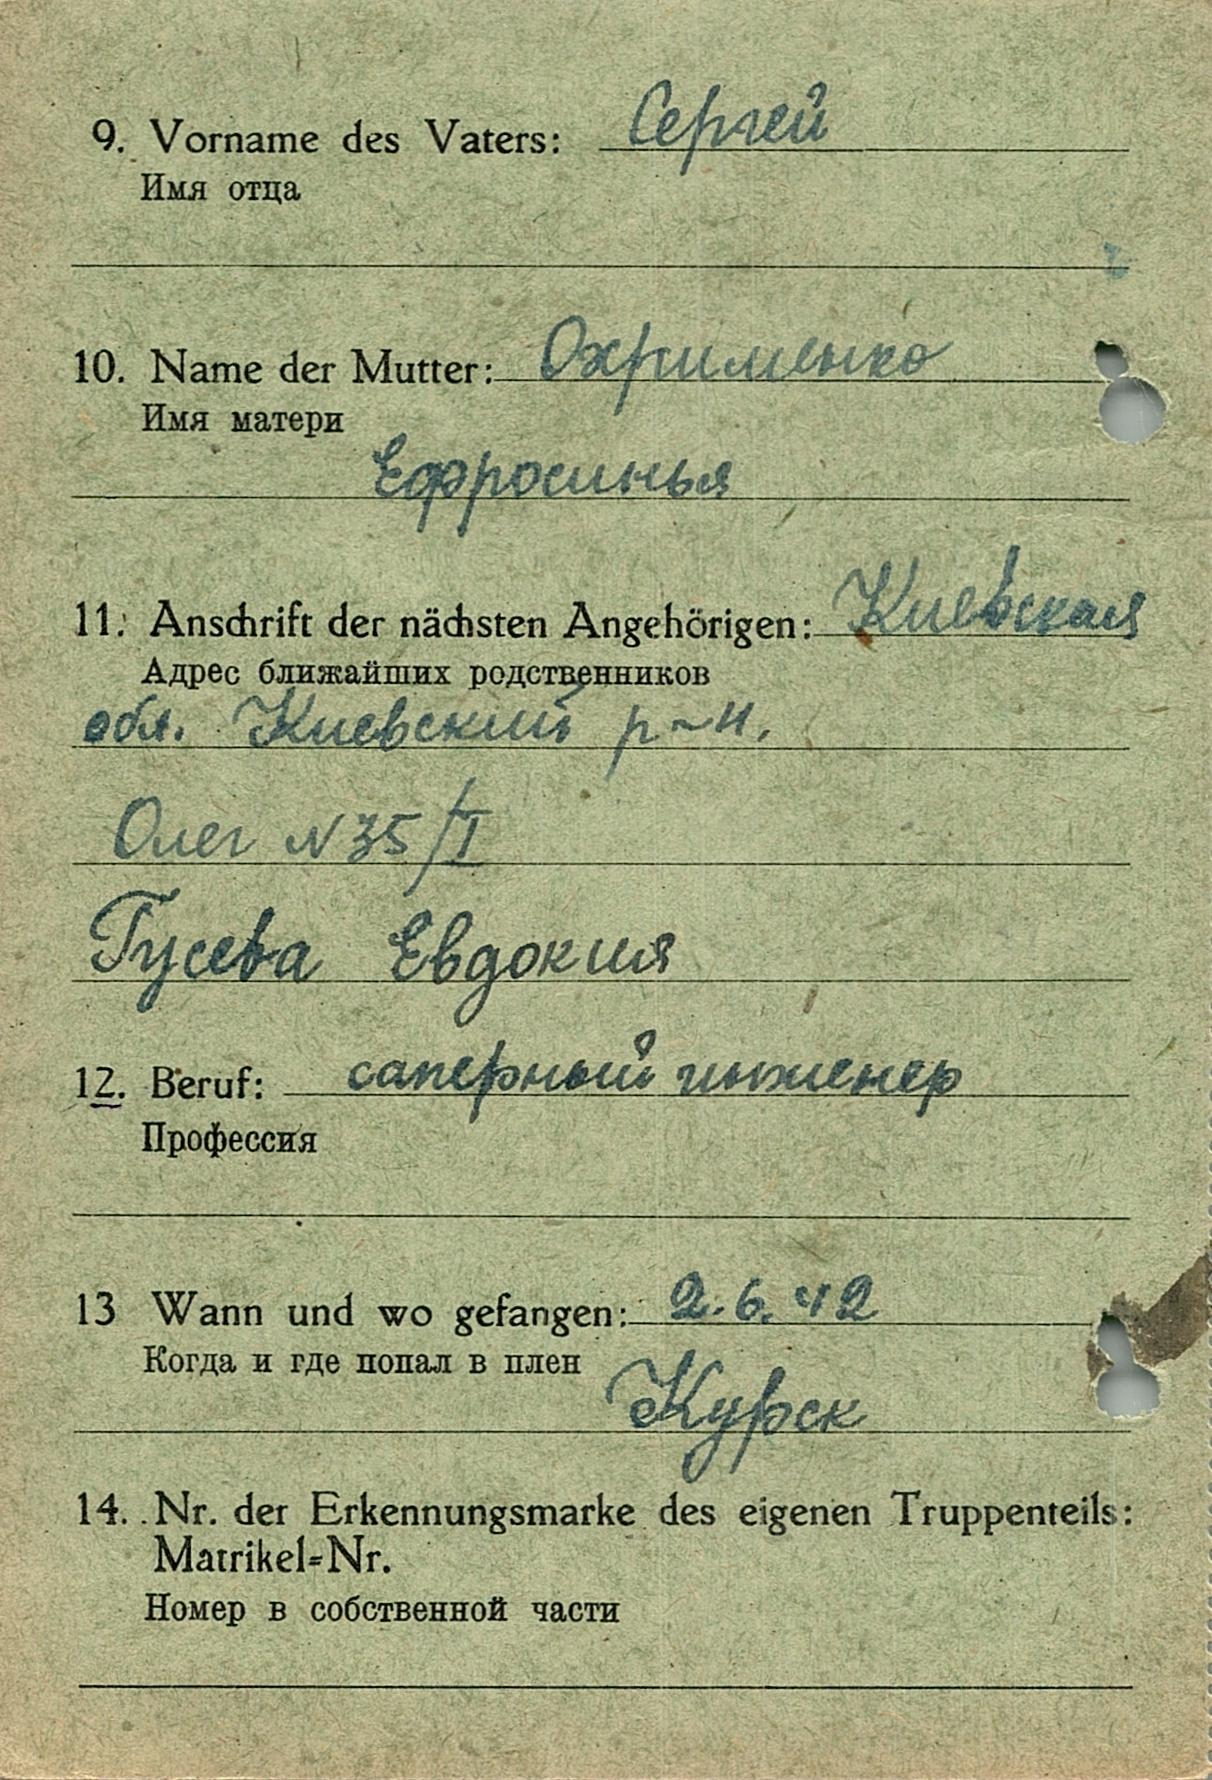 9. Vorname des Vaters: Сергей
Имя отца
10. Name der Mutter: Охрименко
Имя матери
Ефросинья
11. Anschrift der nächsten Angehörigen: Киевская
Адрес ближайших родственников
обл. Киевский р-н.
Олег N 35/I
Гусева Евдокия
12. Beruf: саперный инженер
Профессия
13 Wann und wo gefangen: 2.6.42
Когда и где попал в плен
Курск
14. Nr. der Erkennungsmarke des eigenen Truppenteils:
Matrikel-Nr.
Номер в собственной части